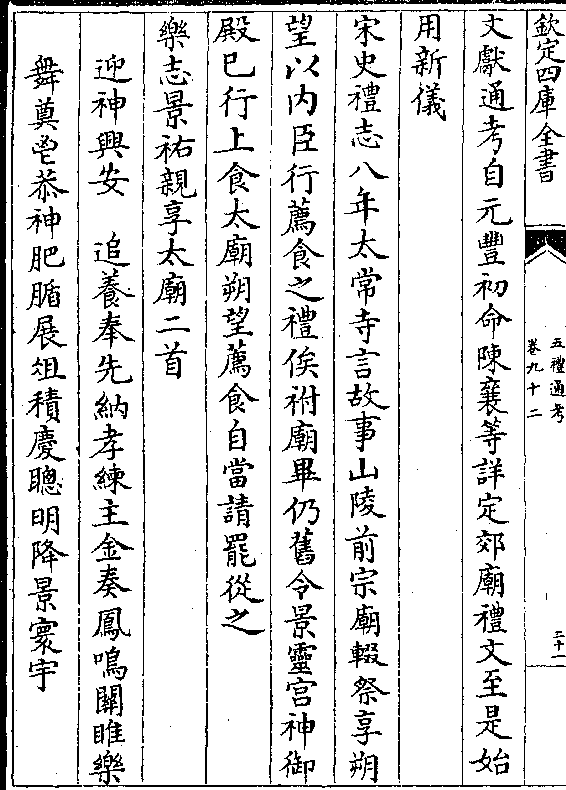 欽定四庫全書
五禮通考
卷九十二
二十一
文獻通考自元豐初命陳襄等詳定郊廟禮文至是始
用新儀
宋史禮志八年太常寺言故事山陵前宗廟輟祭享朔
望以内臣行薦食之禮俟祔廟畢仍舊令景靈宫神御
殿已行上食太廟朔望薦食自當請罷從之
樂志景祐親享太廟二首
迎神興安　追養奉先納孝練主金奏鳳鳴關雎樂
舞奠鬯恭神肥腯展俎積慶聰明降景寰宇